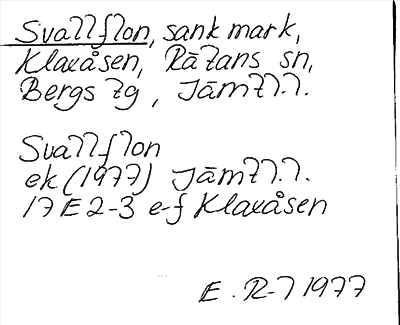 Svallflon, sank mark,
Klaxåsen, Rätans sn,
Bergs tg, Jämtl.l.
Svallflon
ek (1977) Jämtl.l.
17E 2-3 e-f Klaxåsen
E. R-l 1977